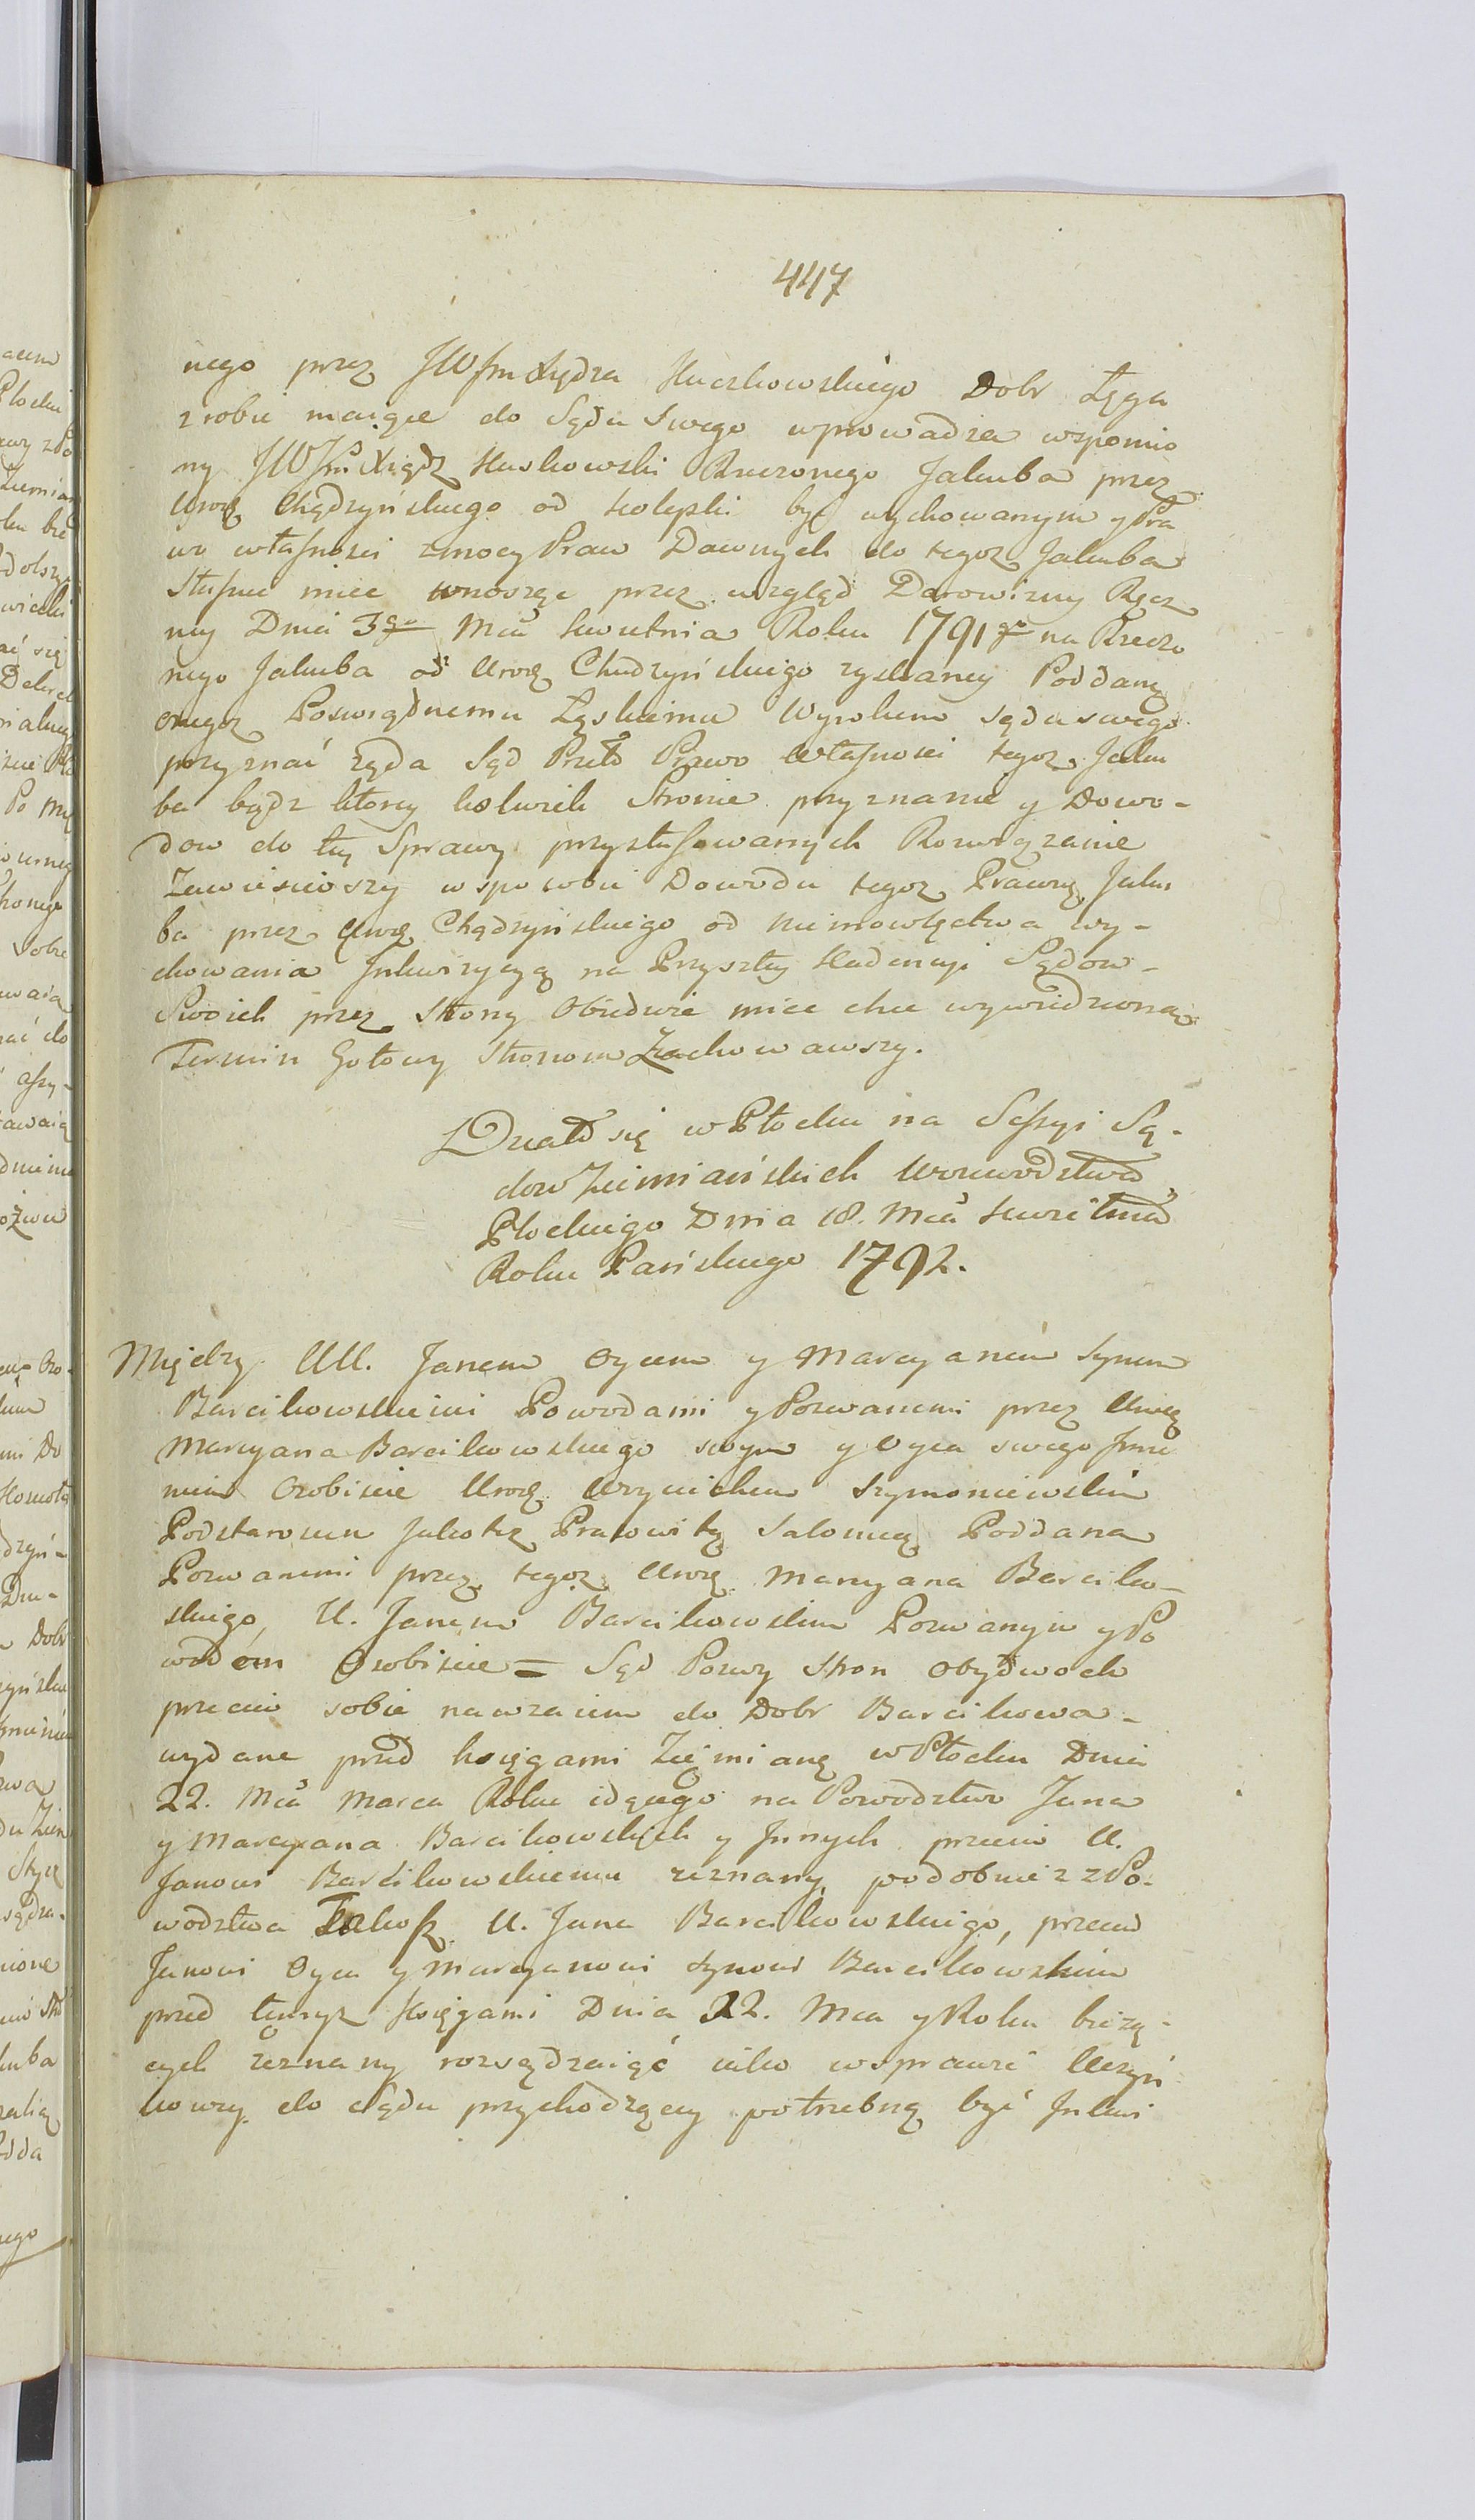 447
nego przez JWJm Xiędza Kuczkowskiego Dobr Łęga
zrobić maiące do Sądu Swego wprowadza wspomio
ny JWJm Xiądz Kuczkowski Rzeczonego Jakuba przez
Urog Chądzyńskiego od kolepki być wychowanym y Pra
wo własności z mocy Praw Dawnych do tegoż Jakuba
Słuszne mieć wnosząc przez wzgląd Darowizny Ręcz
ney Dnia 3go Mca Kwietnia Roku 1791go na Rzeczo
nego Jakuba od Urog Chudzyńskiego zyskaney Poddany
onegoż Poswiądnemu Łęskiemu Wyrokiem sądu swego
przyznać żąda Sąd Przeto Prawo własnosci tegoż Jaku
ba bądz ktorey kolwiek Stronie przyznanie y Dowo-
dow do tey Sprawy przystosowanych Rozwiązanie
Zawiesiwszy wsposobie Dowodu tegoż Pracowg Jaku
ba przez Urog Chądzyńskiego od niemowlęctwa wy-
chowania Inkwizycyą na Przyszłey Kadencyi Sądow-
Swoich przez Strony Obiedwie mieć chce wywiedzioną
Termin Gotowy Stronom Zachowawszy.
Działo się w Płocku na Sessyi Są-
dow Ziemiańskich Woiewodztwa
Płockiego Dnia 18. Mca Kwietnia
Roku Pańskiego 1792.
Między UU. Janem Oycem y Marcyanem Synem
Barcikowskiemi Powodami y Pozwanemi przez Urog
Marcyana Barcikowskiego swym y Oyca swego Imie
niem Osobiscie Urog Woycichem Szymoniewskim
Podstaroscim Jakoteż Pracowitą Salomeą Poddana
Pozwanemi przez tegoż Urog Marcyana Barciko-
skiego, U. Janem Barcikowskim Pozwanym y Po
wodem Osobiscie = Sąd Pozwy Stron Obydwoch
przeciw sobie nawzaiem do Dobr Barcikowa-
wydane przed księgami Ziemianę w Płocku Dnia
22. Mca Marca Roku idącego na Powodztwo Jana
y Marcyana Barcikowskich y Innych przeciw U.
Janowi Barcikowskiemu zeznany, podobnież z Po-
wodztwa Takoż U. Jana Barcikowskiego, przeciw
Janowi Oycu y Marcyanowi Synowi Barcikowskim
przed temiż Księgami Dnia 22. Mca y Roku bieżą-
cych zeznany rozsądzaiąc iako w sprawie Uczyń
kowey do Sądu przychodzącey potrzebną być Inkwi